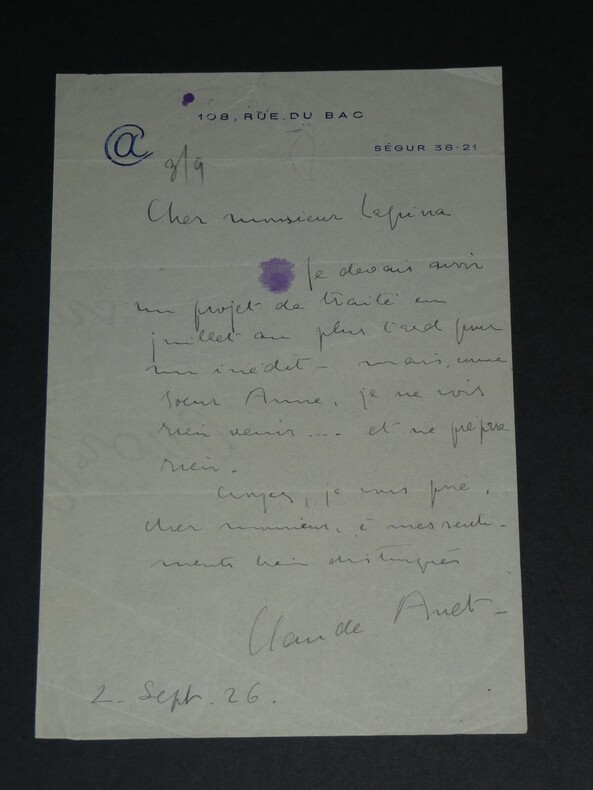 108, RUE DU BAC
@
SÉGUR 38-21
3/9
Cher monsieur
Je devais avoir
un projet de traité en
juillet au plus tard pour
un inédit – mais, comme
soeur Anne, je ne vois
rien venir.... et ne prépare
rien.
Croyez, je vous prie,
cher monsieur, à mes senti-
ments bien distingués
Claude Anet –
2. Sept. 26.